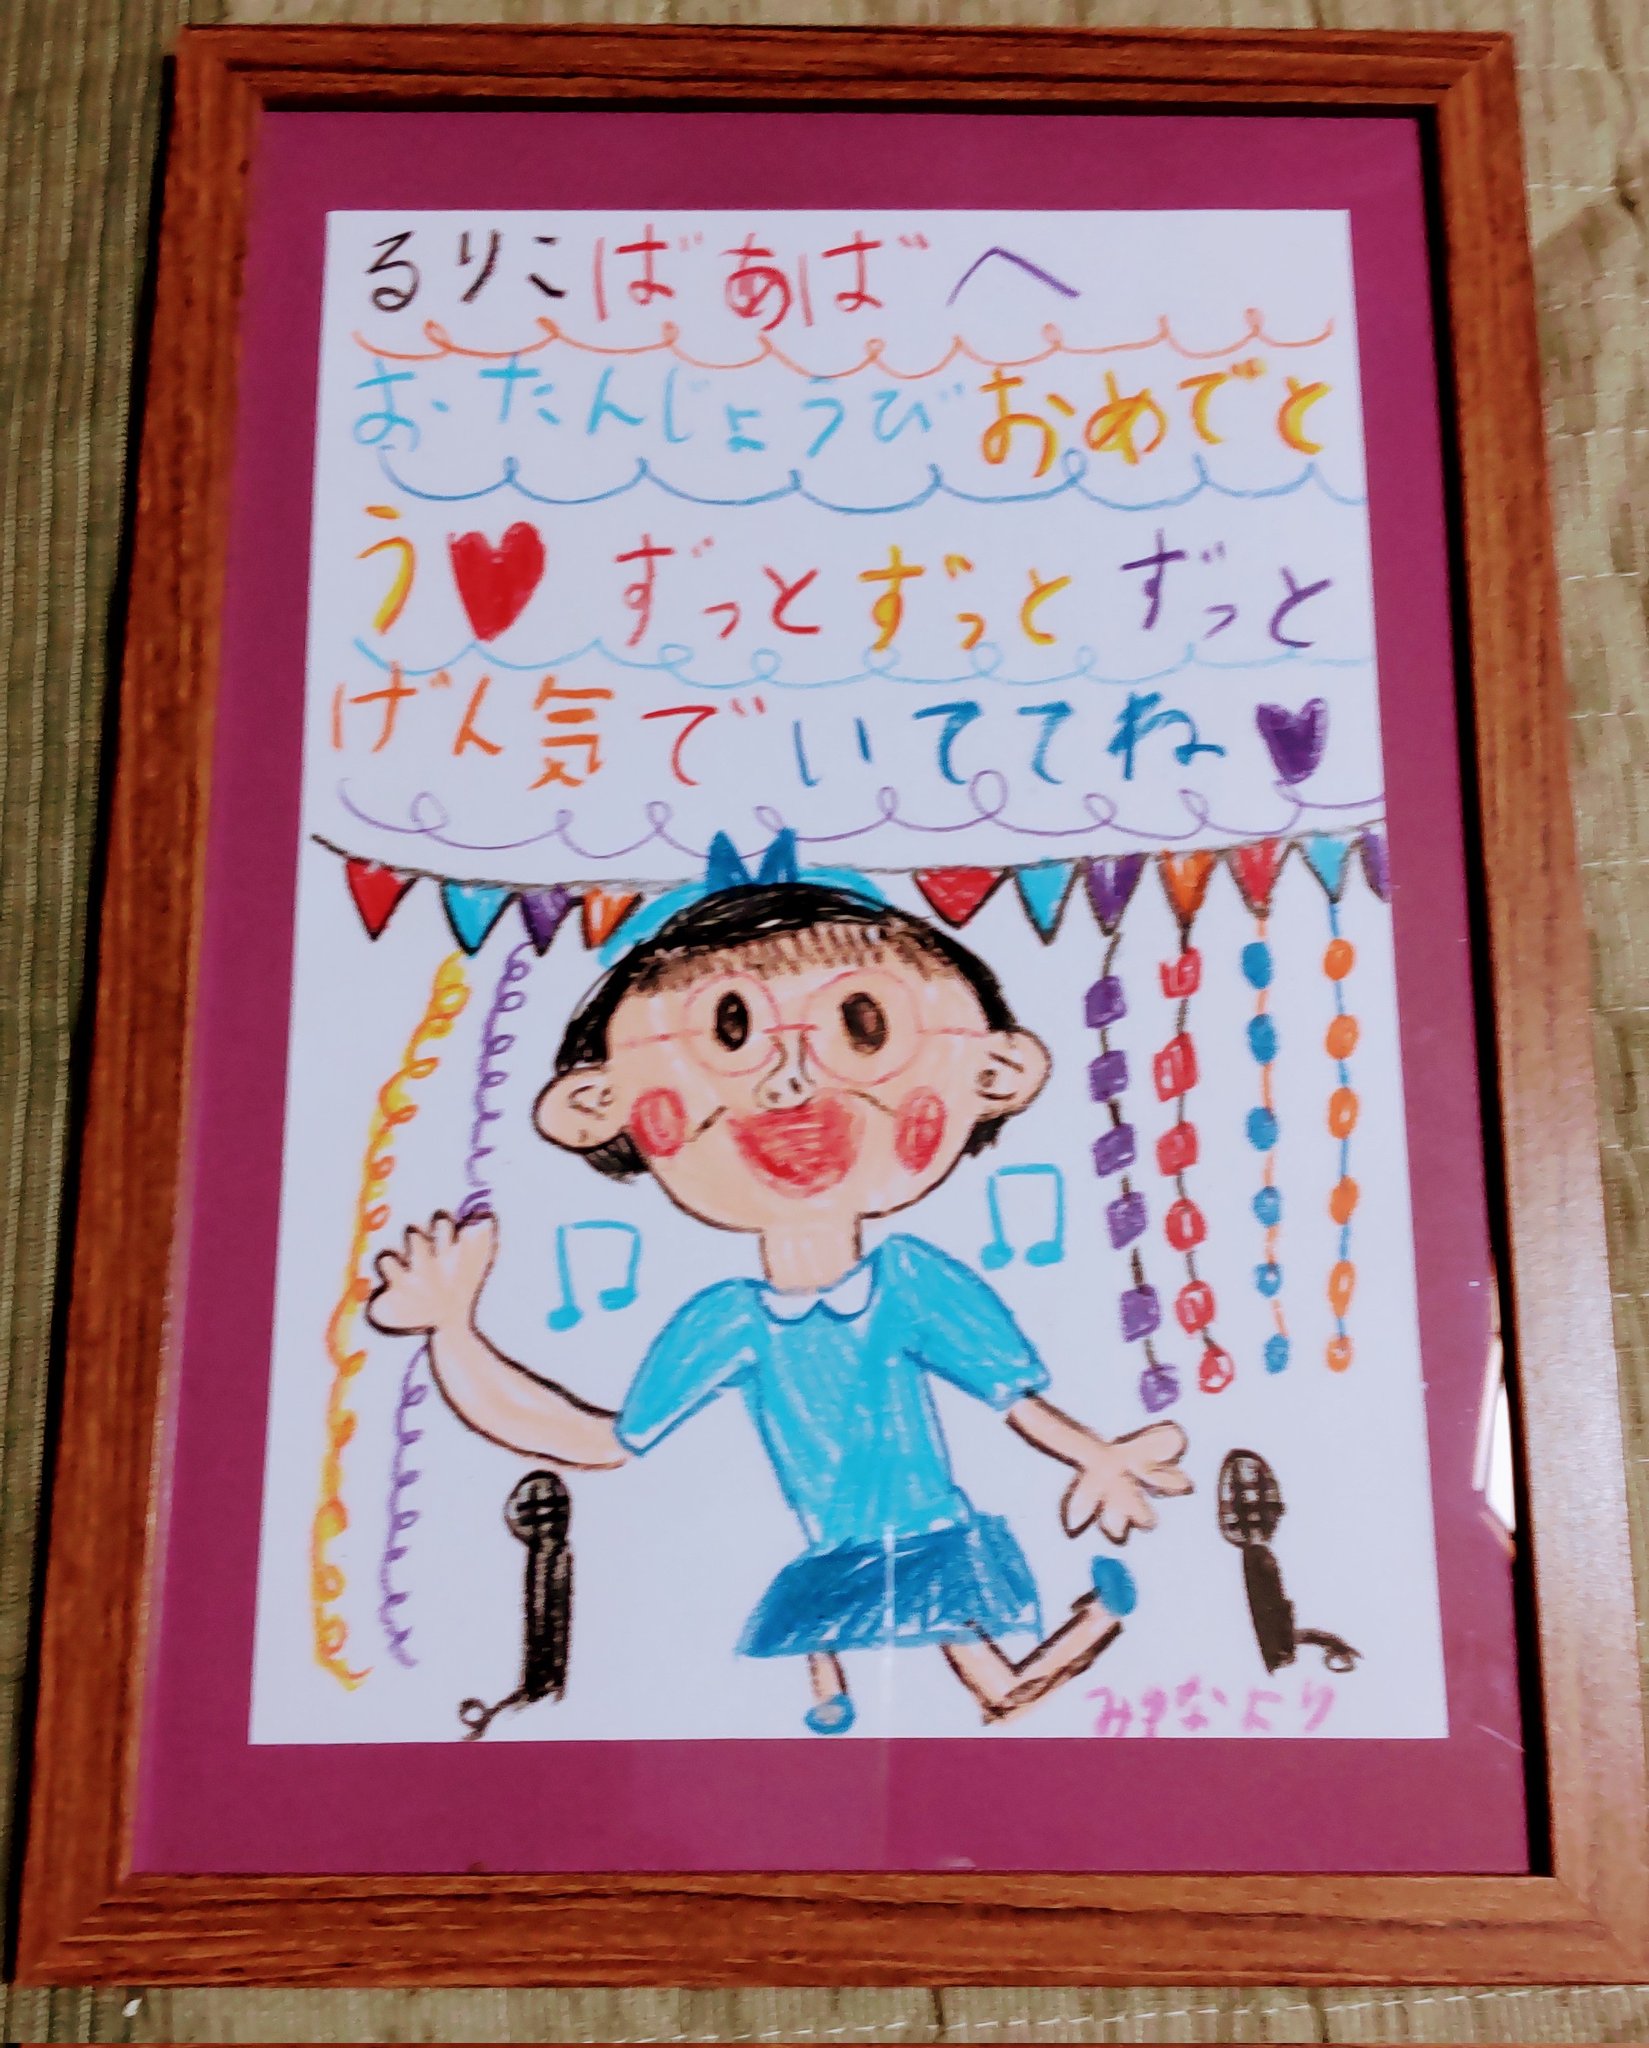 るりこばあばへ
おたんじょうびおめでと
う♥ ずっとずっとずっと
げん気でいててね♥
より